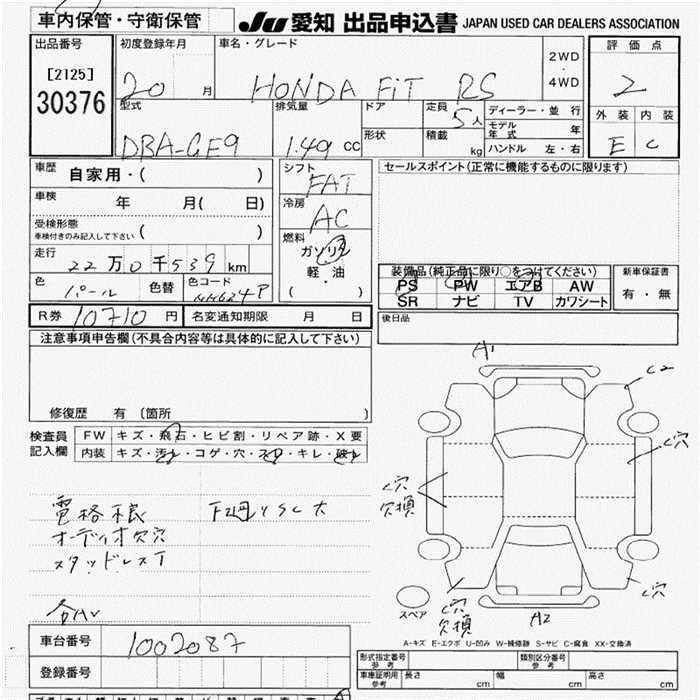 車内保管・守衛保管
JU 愛知 出品申込書 JAPAN USED CAR DEALERS ASSOCIATION
出品番号 初度登録年月 車名・グレード 評価点
[2125] 30376
20 月 HONDA FiT RS 2WD・4WD 2
型式 排気量 ドア 定員 5人 ディーラー・並行 外装 内装
モデル年式 年
DBA-GE9 1.49 cc 形状 積載 kg ハンドル 左・右 E C
車歴 自家用・( ) シフト FAT セールスポイント(正常に機能するものに限ります)
車検 年 月( 日) 冷房 AC
受検形態 車検付きのみ記入して下さい ( ) 燃料 ガソリン
走行 22万0千539km 軽・油 装備品(純正品に限り○をつけてください) 新車保証書
色 パール 色替 色コード NH624P ( ) PS PW エアB AW 有・無
SR ナビ TV カワシート
R券 10710円 名変通知期限 月 日 後日品
注意事項申告欄(不具合内容等は具体的に記入して下さい)
A1
C2
修復歴 有 (箇所 )
検査員記入欄 FW キズ・飛石・ヒビ割・リペア跡・X要
内装 キズ・汚れ・コゲ・穴・スレ・キレ・破れ
C穴
C穴
欠損
電格根 下凹 ySC大
オーディオ欠穴
スタッドレスT
C穴
C穴
欠損
スペア
A2
A-キズ E-エクボ U-凹み W-補修跡 S-サビ C-腐食 XX-交換済
車台番号 1002087
登録番号
形式指定番号 参考 類別区分番号 参考
車庫証明用 参考 長さ cm 幅 cm 高さ cm